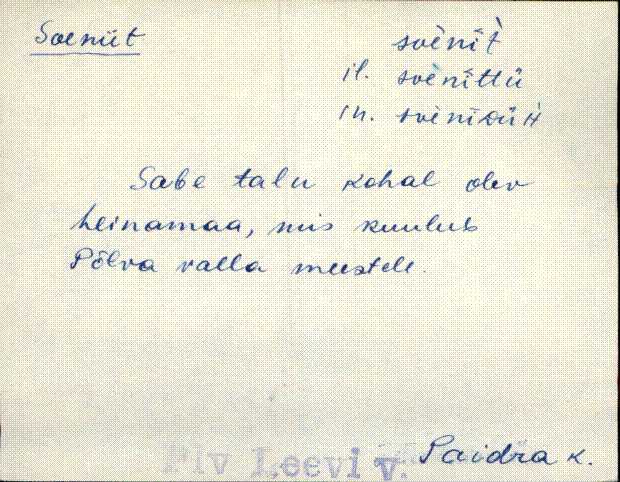 Soeniit
svènì̆t̀
il. svènìttü
in. svènìᴅüH
Sabe talu kohal olev
heinamaa, mis kuulub
Põlva valla meestele.
Plv Leevi v. Paidra k.